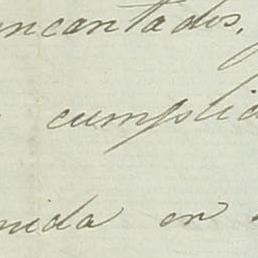 encantados,
cumplid
nida en